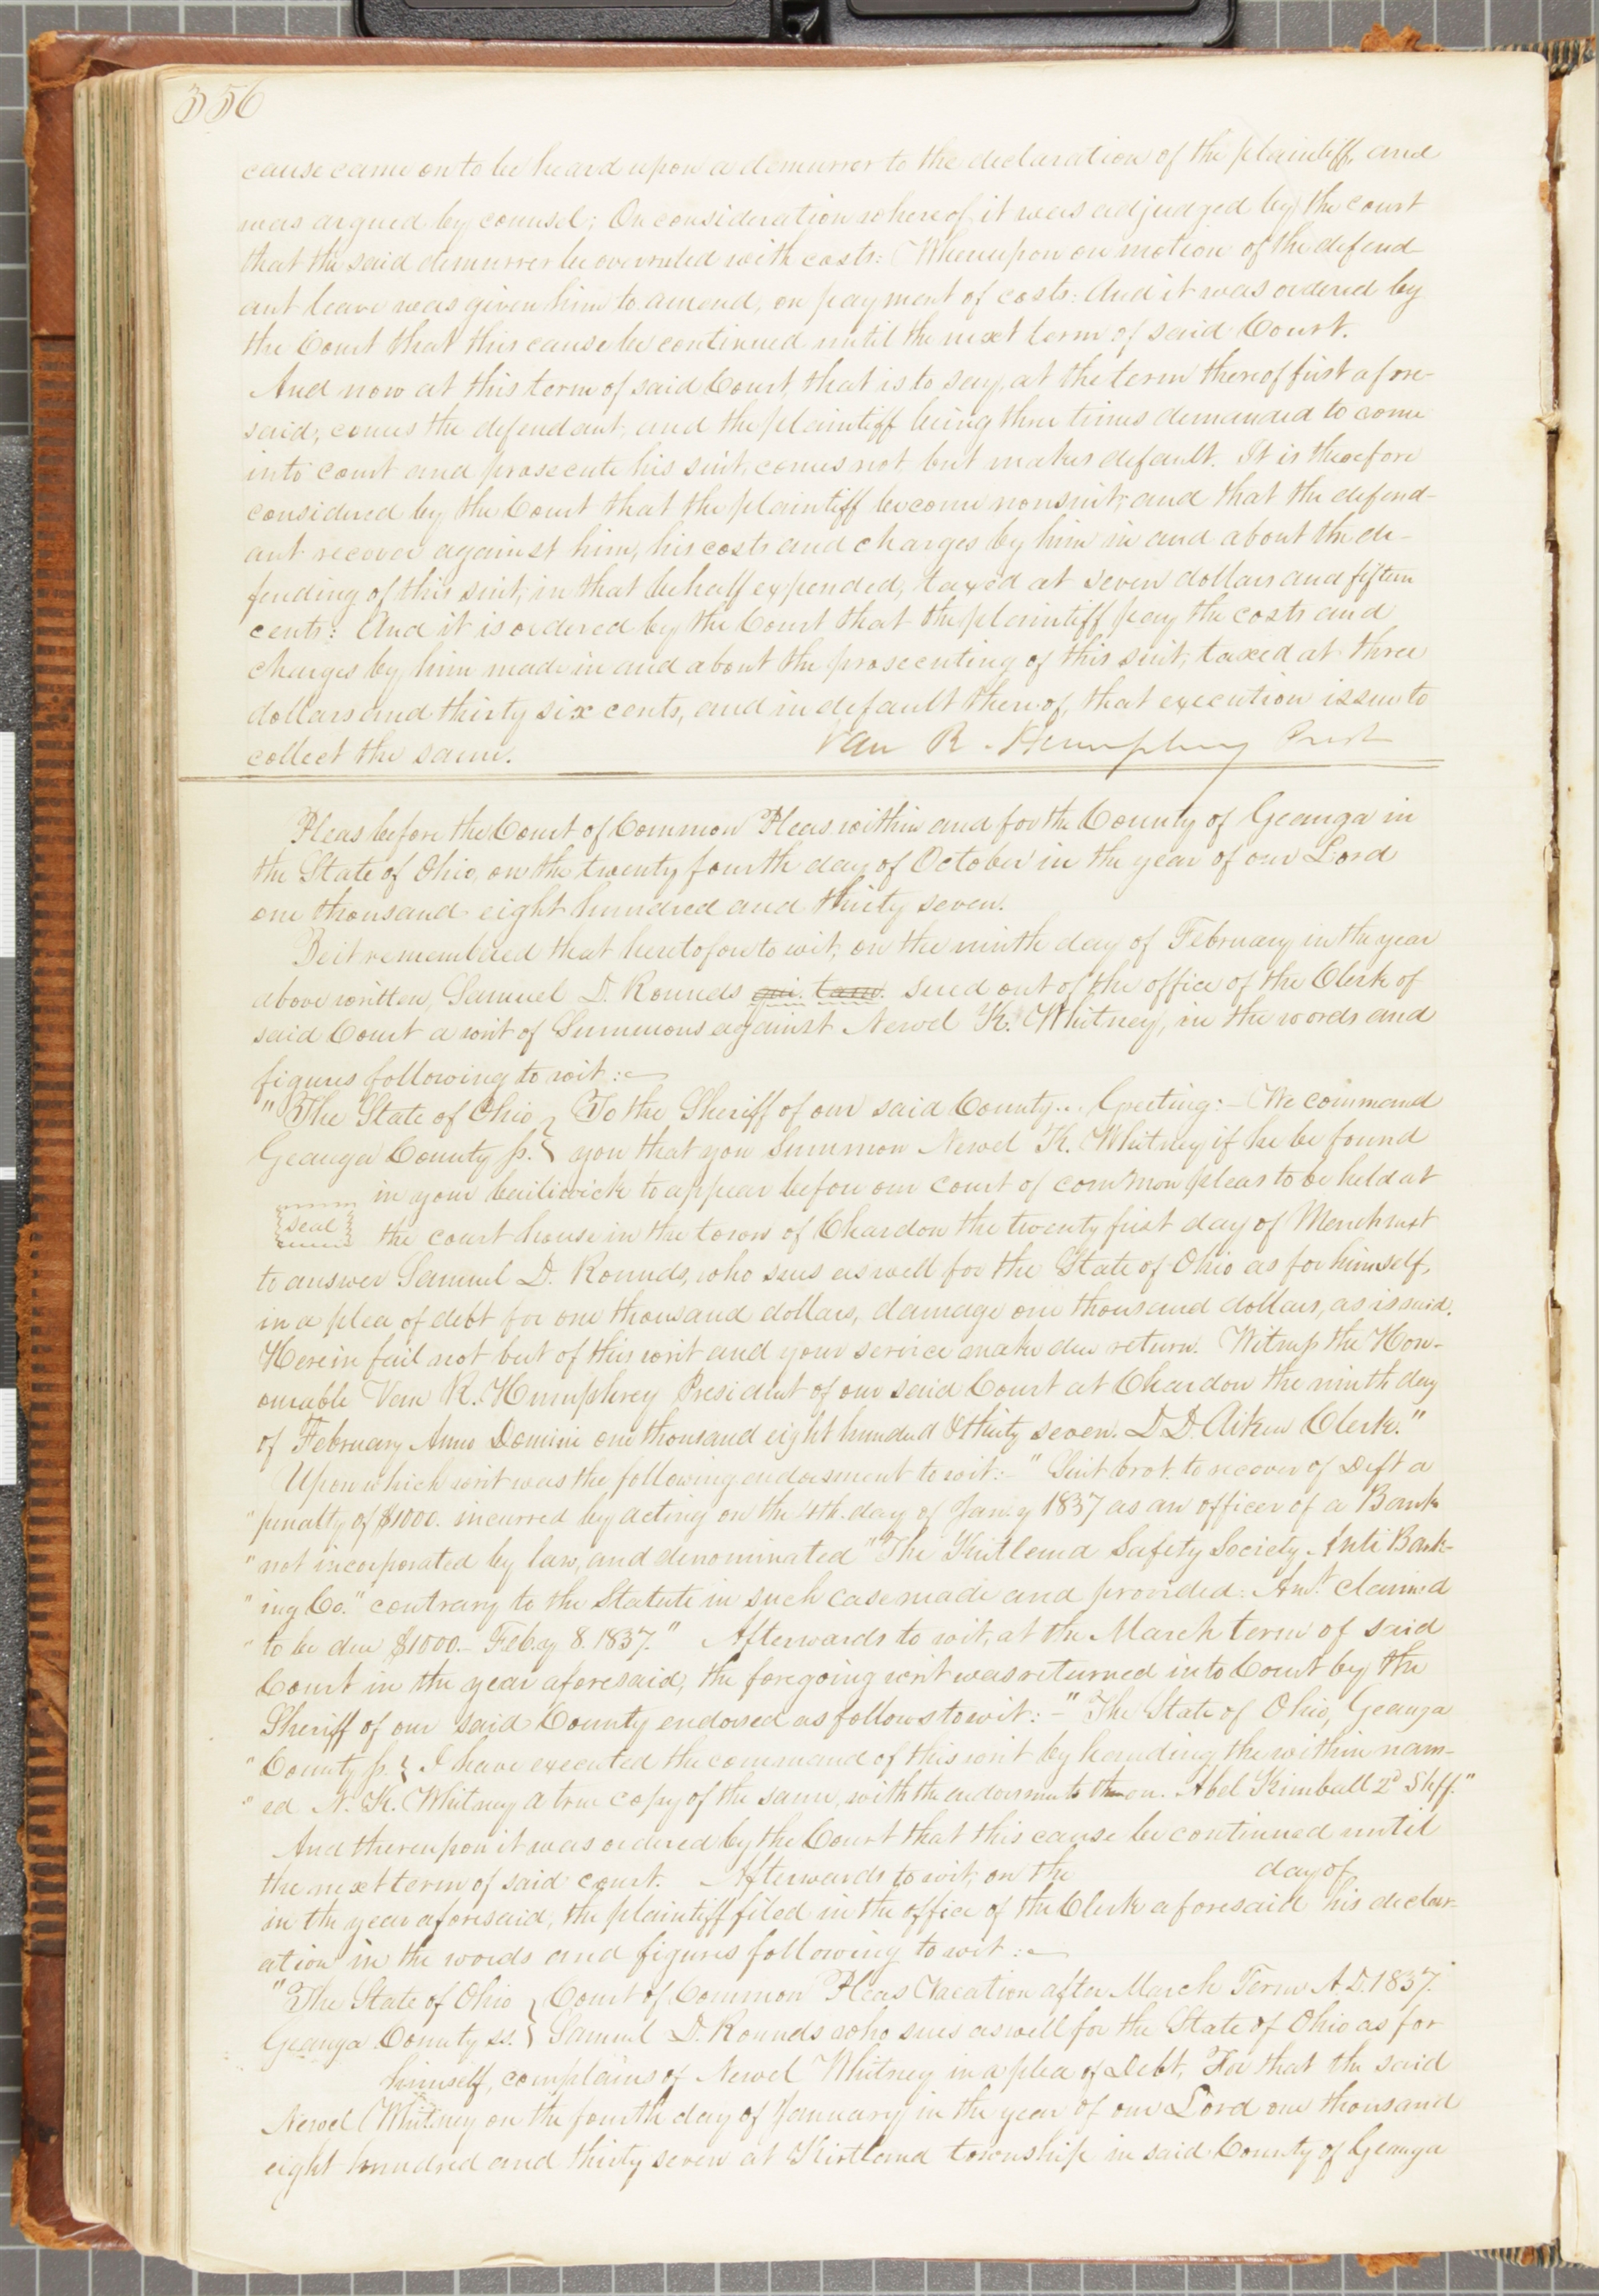 356
cause came on to be heard upon a demurrer to the declaration of the plaintiff, and
was argued by counsel; On consideration whereof, it was adjudged by the court
that the said demurrer be overruled with costs: Whereupon on motion of the defend
ant leave was given him to amend, on payment of costs: And it was ordered by
the Court that this cause be continued until the next term of said Court.
And now at this term of said Court, that is to say, at the term thereof first afore-
said, comes the defendant, and the plaintiff being three times demanded to come
into court and prosecute his suit, comes not, but makes default. It is therefore
considered by the Court that the plaintiff become nonsuit; and that the defend-
ant recover against him, his costs and charges by him in and about the de-
fending of this suit, in that behalf expended, taxed at seven dollars and fifteen
cents: And it is ordered by the Court that the plaintiff pay the costs and
charges by him made in and about the prosecuting of this suit, taxed at three
dollars and thirty six cents, and in default thereof, that execution issue to
collect the same. Van R. Humphrey Prest
Pleas before the Court of Common Pleas within and for the County of Geauga in
the State of Ohio, on the twenty fourth day of October in the year of our Lord
one thousand eight hundred and thirty seven.
Be it remembered that heretofore to wit, on the ninth day of February in the year
above written, Samuel D. Rounds qui. tam. sued out of the office of the Clerk of
said Court a writ of Summons against Newel K. Whitney, in the words and
figures following to wit:
"The State of Ohio } To the Sheriff of our said County... Greeting:- We command
Geauga County ss. } you that you summon Newel K. Whitney if he be found
in your bailiwick to appear before our court of common pleas to be held at
seal the court house in the town of Chardon the twenty first day of March next
to answer Samuel D. Rounds, who sues as well for the State of Ohio as for himself,
in a plea of debt for one thousand dollars, damage one thousand dollars, as is said.
Herein fail not but of this writ and your service make due return. Witness the Hon-
ourable Van R. Humphrey President of our said Court at Chardon the ninth day
of February Anno Domini one thousand eight hundred & thirty seven. D. D. Aiken Clerk."
Upon which writ was the following endorsment to wit:- "Suit brot. to recover of Deft a
"penalty of $1000. incurred by acting on the 4th. day of Jany 1837 as an officer of a Bank
"not incorporated by law, and denominated "The Kirtland Safety Society Anti Bank-
"ing Co." contrary to the Statute in such case made and provided: Amt. claimed
"to be due $1000.- Feby 8. 1837." Afterwards to wit, at the March term of said
Court in the year aforesaid, the foregoing writ was returned into Court by the
Sheriff of our said County endorsed as follows to wit:- "The State of Ohio, Geauga
"County ss. } I have executed the command of this writ by handing the within nam-
"ed N. K. Whitney a true copy of the same, with the endorsments thereon. Abel Kimball 2d Shff."
And thereupon it was ordered by the Court that this cause be continued until
the next term of said court. Afterwards to wit, on the day of
in the year aforesaid, the plaintiff filed in the office of the Clerk aforesaid his declar-
ation in the words and figures following to wit:
"The State of Ohio } Court of Common Pleas Vacation after March Term A.D. 1837.
Geauga County ss. } Samuel D. Rounds who sues as well for the State of Ohio as for
himself, complains of Newel Whitney in a plea of Debt, For that the said
Newel Whitney on the fourth day of January in the year of our Lord one thousand
eight hundred and thirty seven at Kirtland township in said County of Geauga